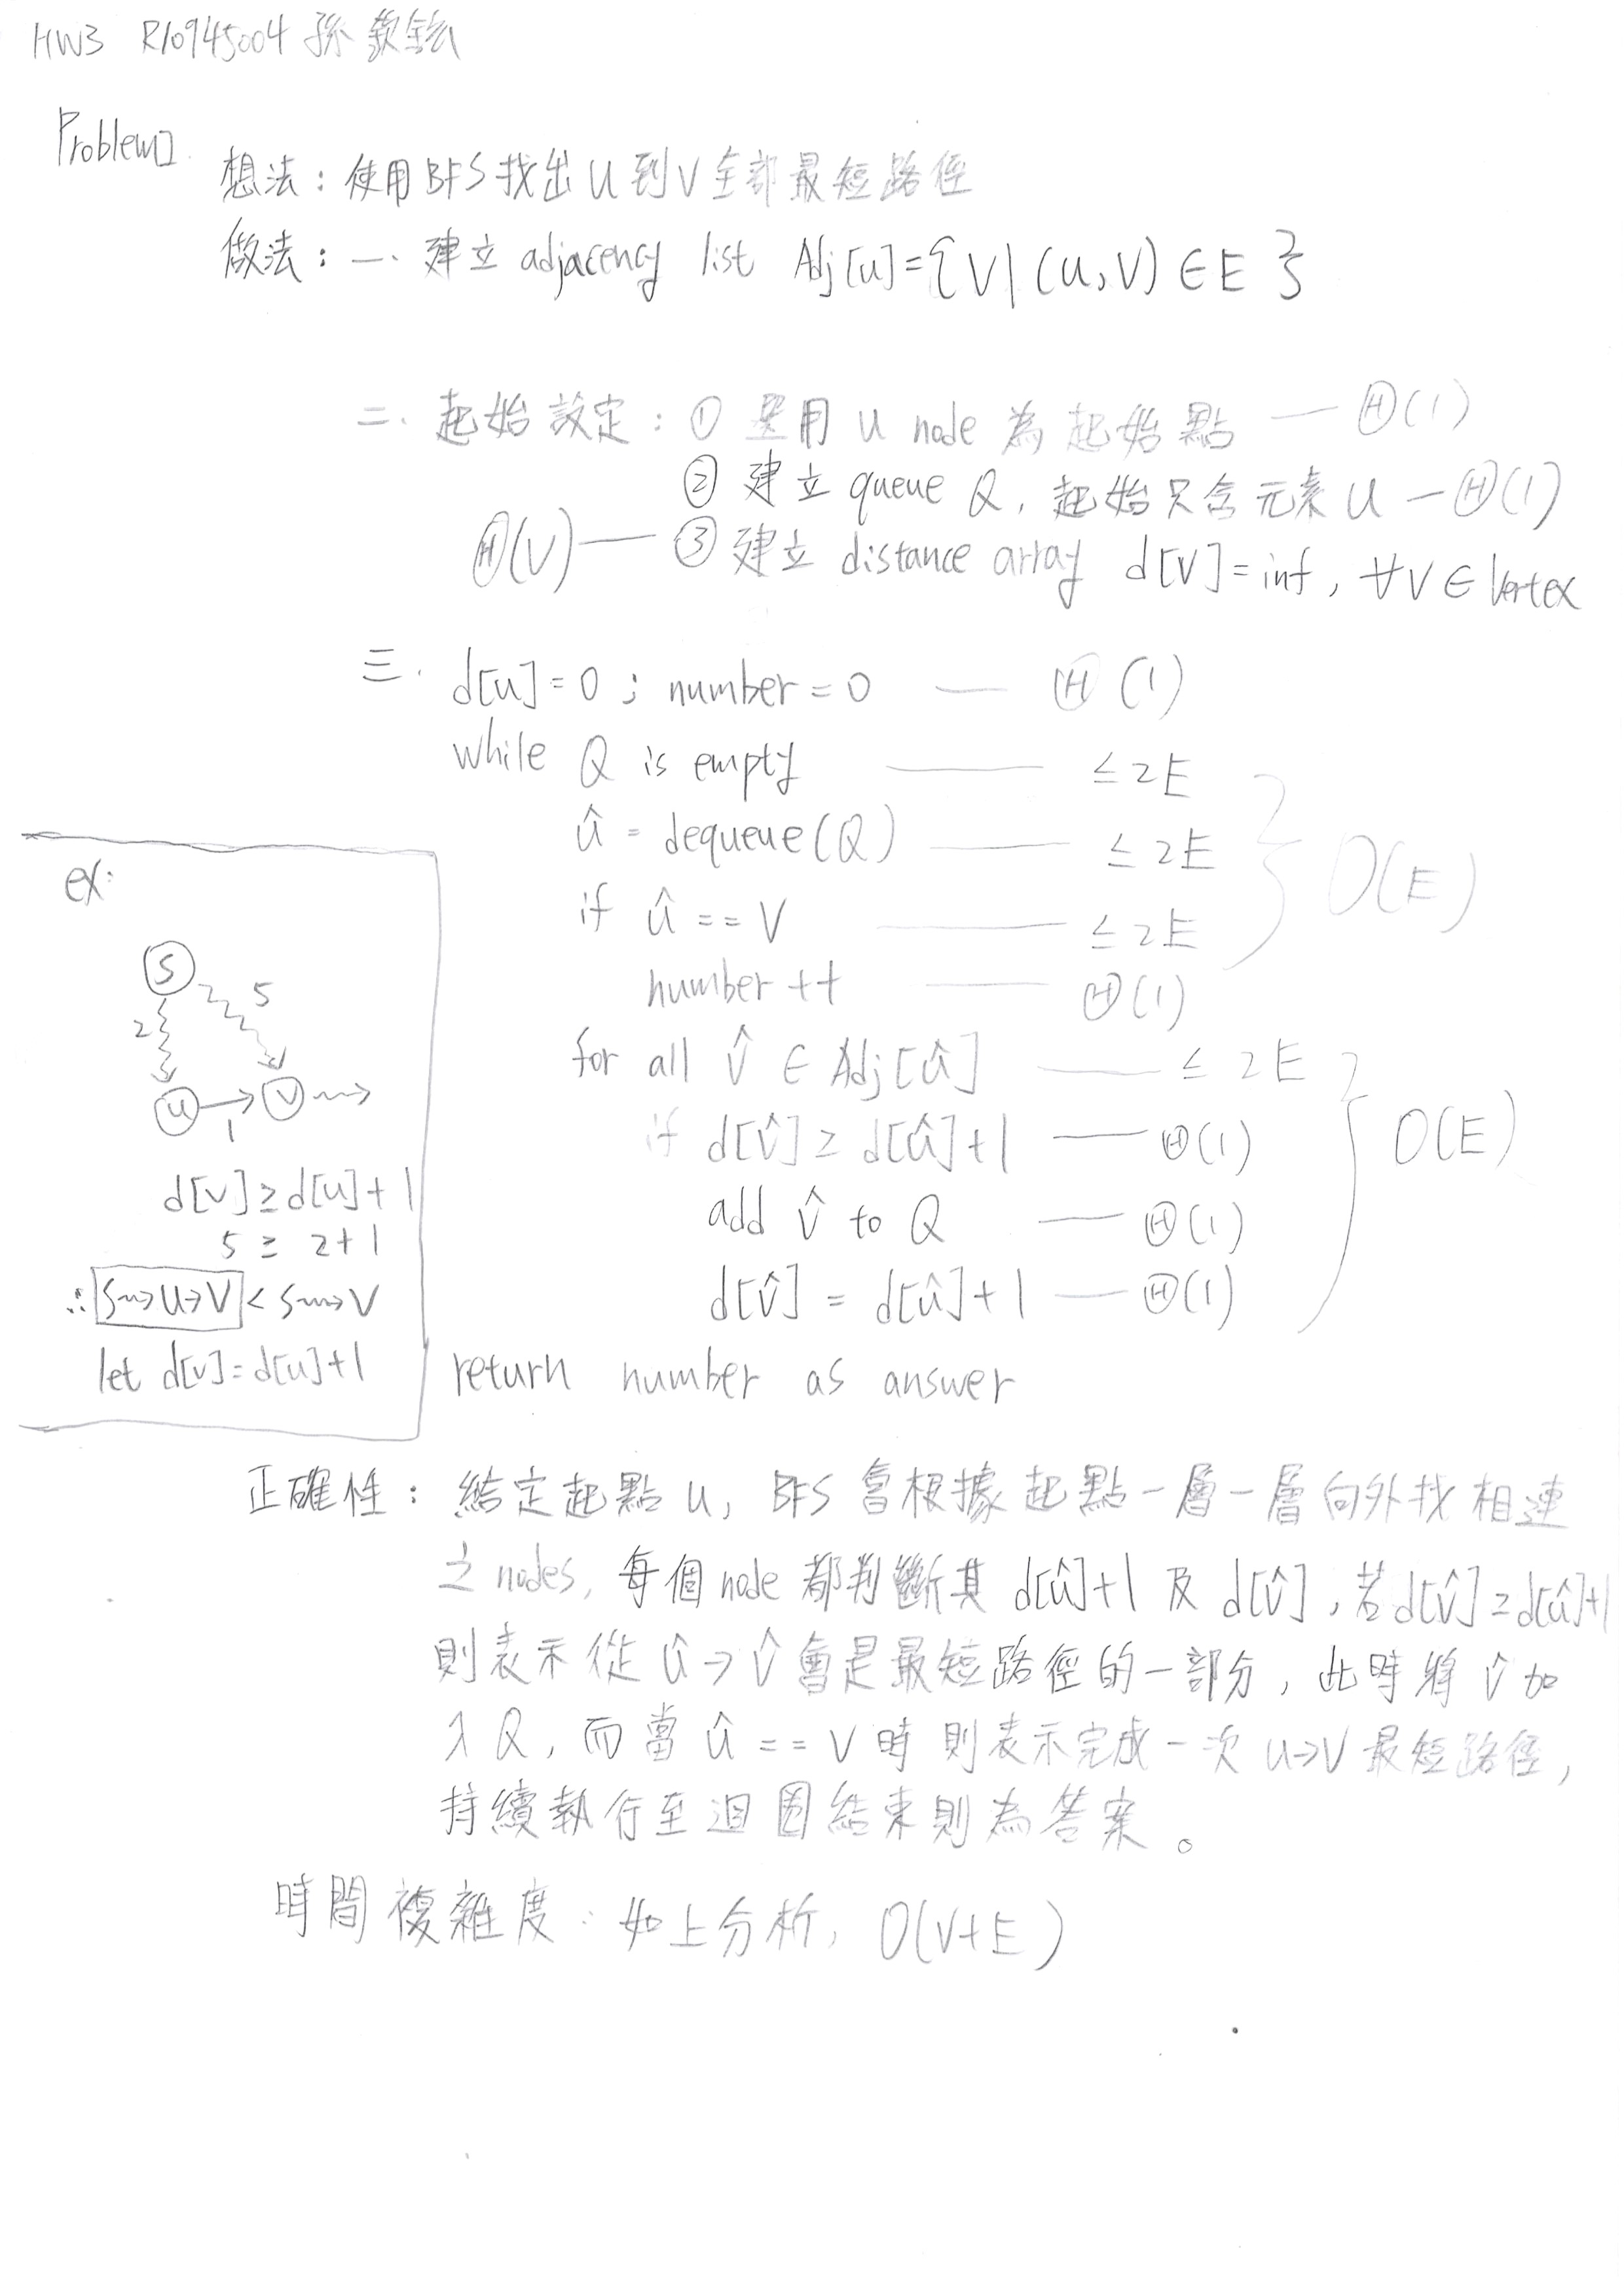 HW3 R10945004 孫
Problem1
想法：使用BFS找出u到v全部最短路徑
做法：一. 建立 adjacency list Adj[u]={v|(u,v)∈E}
二. 起始設定：① 選用 u node 為起始點 — Θ(1)
② 建立 queue Q, 起始只含元素 u — Θ(1)
Θ(V) — ③ 建立 distance array d[v]=inf, ∀v∈Vertex
三. d[u]=0; number=0 — Θ(1)
while Q is empty — ≤2E
û = dequeue(Q) — ≤2E
if û == v — ≤2E
O(E)
number ++ — Θ(1)
for all v̂ ∈ Adj[û] — ≤2E
if d[v̂] ≥ d[û]+1 — Θ(1)
O(E)
add v̂ to Q — Θ(1)
d[v̂] = d[û]+1 — Θ(1)
return number as answer
ex:
S
2 5
u v
1
d[v]≥d[u]+1
5 ≥ 2+1
∴ s⇝u→v < s⇝v
let d[v]=d[u]+1
正確性：給定起點 u, BFS 會根據起點一層一層向外找相連
之 nodes, 每個 node 都判斷其 d[û]+1 及 d[v̂], 若 d[v̂]≥d[û]+1
則表示從 û→v̂ 會是最短路徑的一部分, 此時將 v̂ 加
入 Q, 而當 û == v 時 則表示完成一次 u→v 最短路徑,
持續執行至迴圈結束則為答案。
時間複雜度：如上分析, O(V+E)